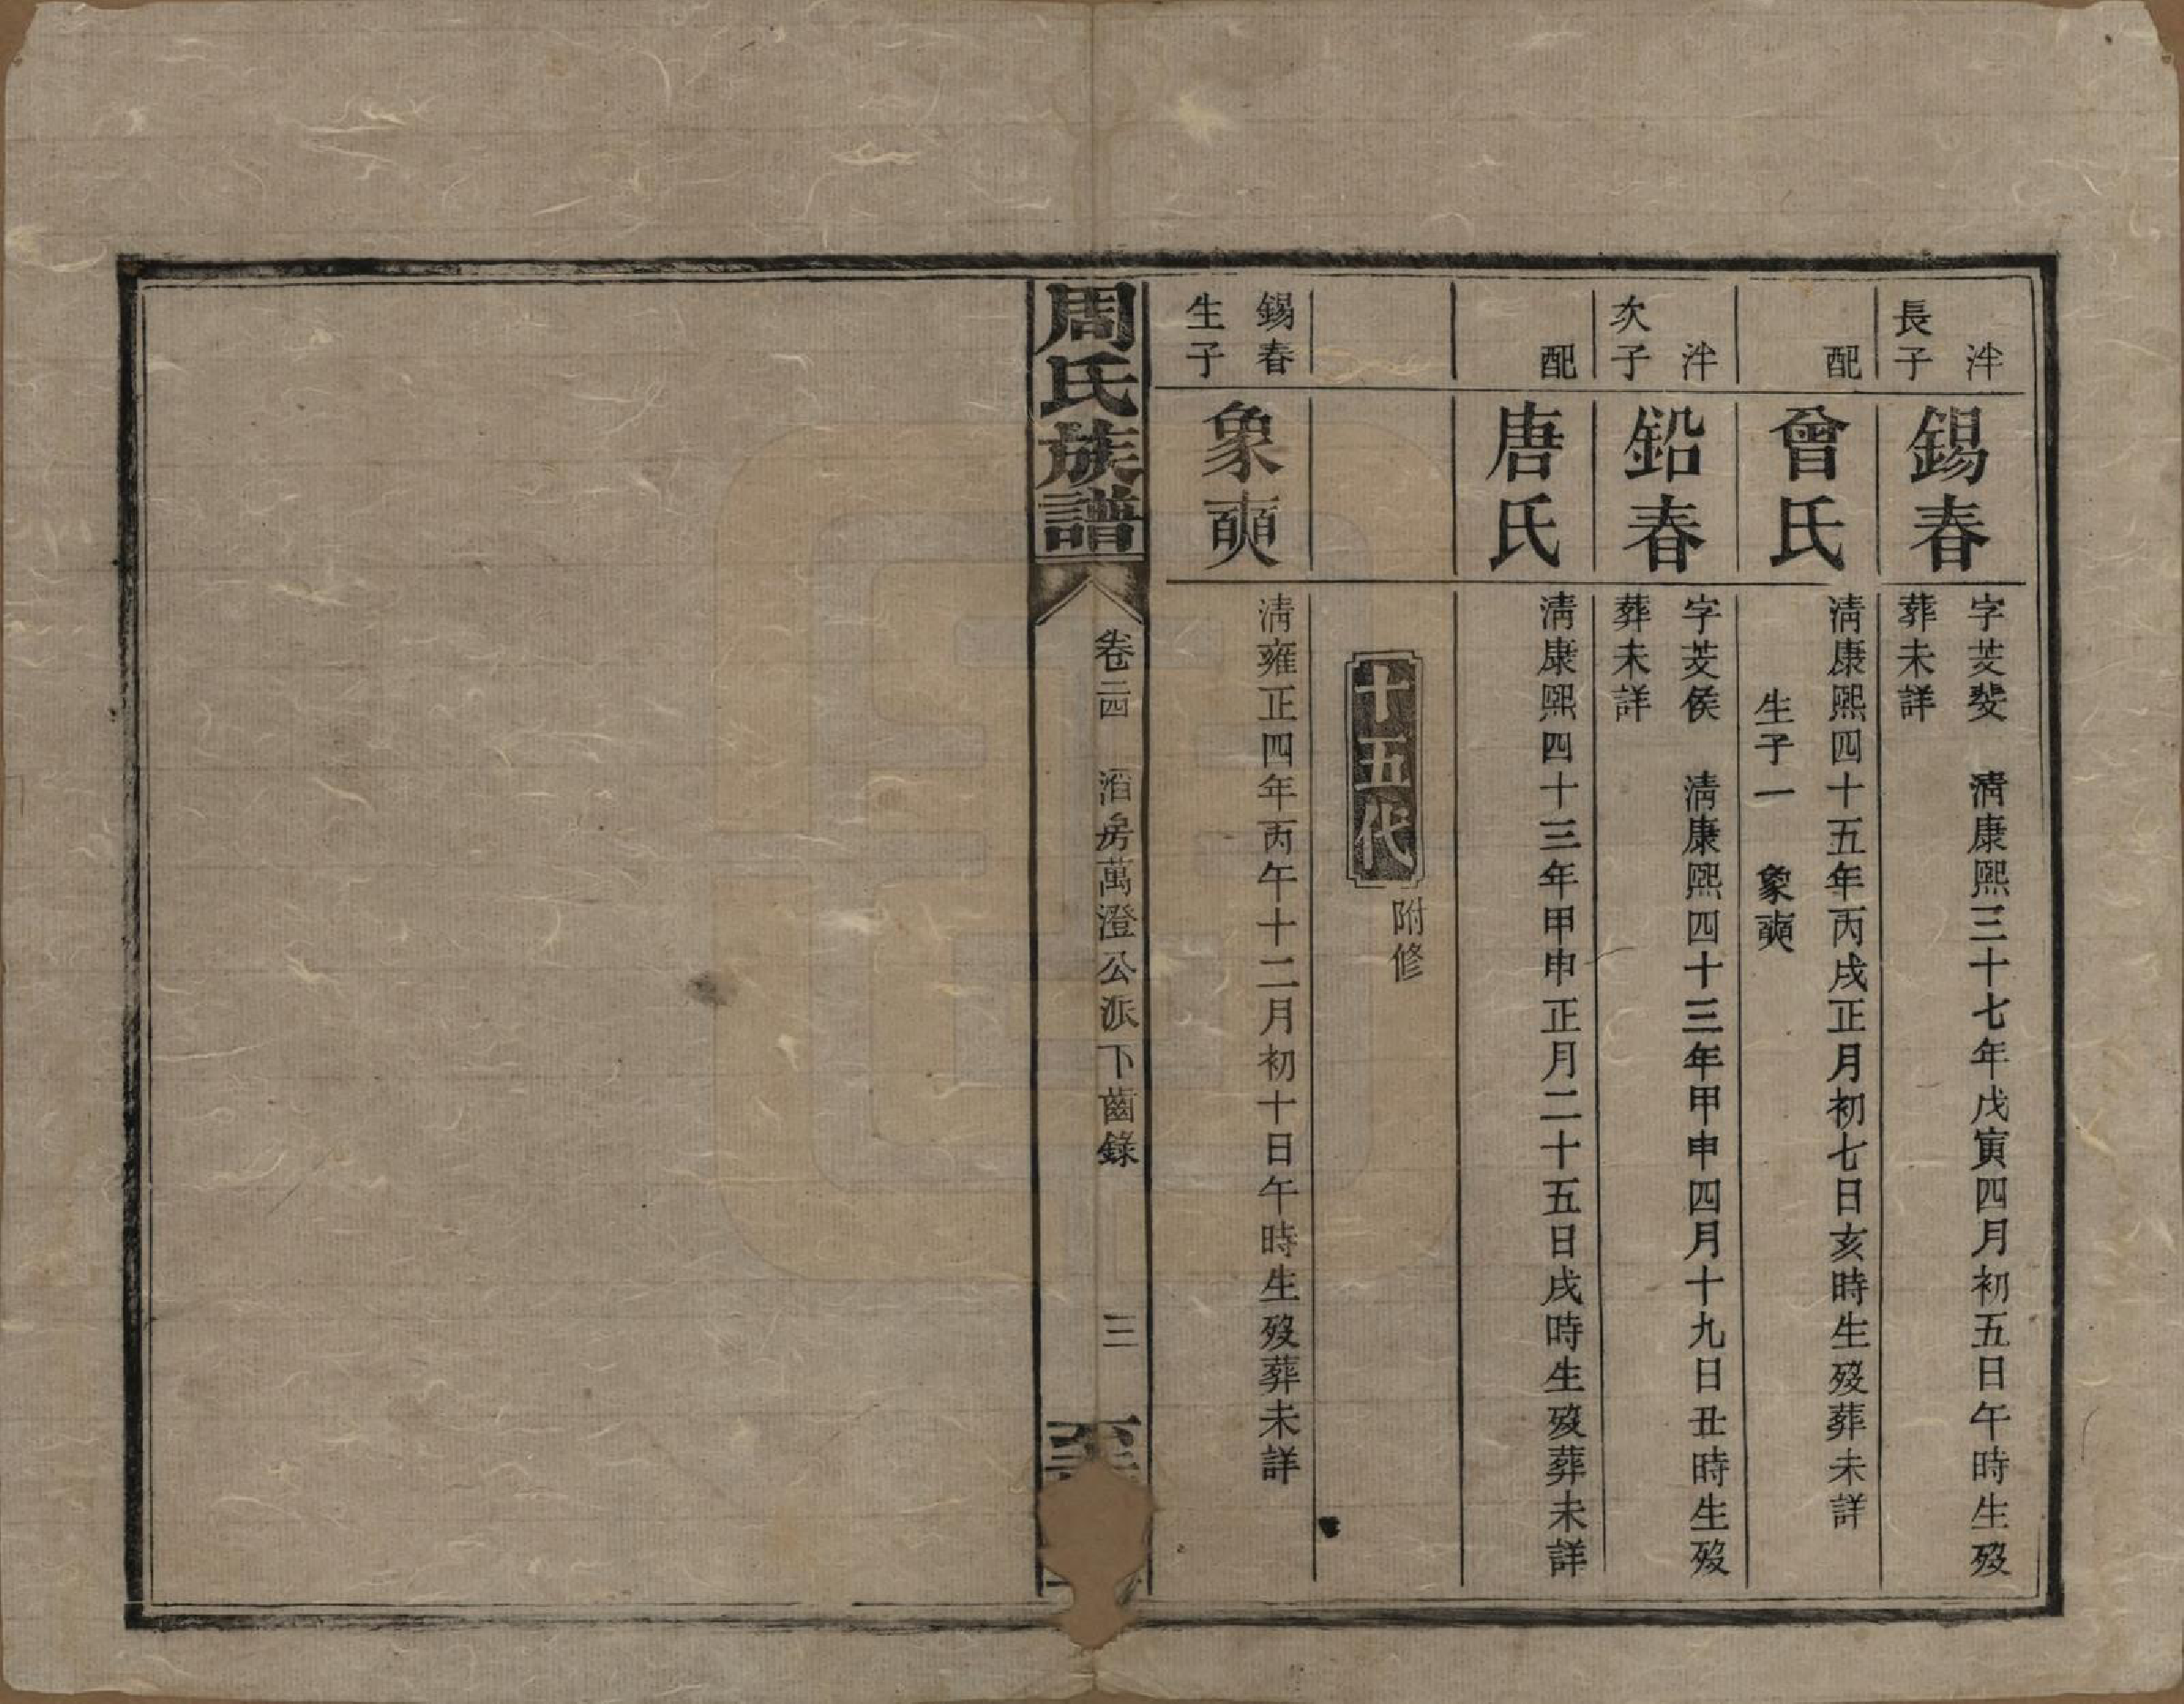 泮
長子
錫春
字芠斐　淸康熙三十七年戊寅四月初五日午時生歿
葬未詳
配
曾氏
淸康熙四十五年丙戌正月初七日亥時生歿葬未詳
生子一　象奭
泮
次子
鉛春
字芠侯　淸康熙四十三年甲申四月十九日丑時生歿
葬未詳
配
唐氏
淸康熙四十三年甲申正月二十五日戌時生歿葬未詳
十五代
附修
錫春
生子
象奭
淸雍正四年丙午十二月初十日午時生歿葬未詳
周氏族譜
卷二四　滔房萬澄公派下齒錄
三
至